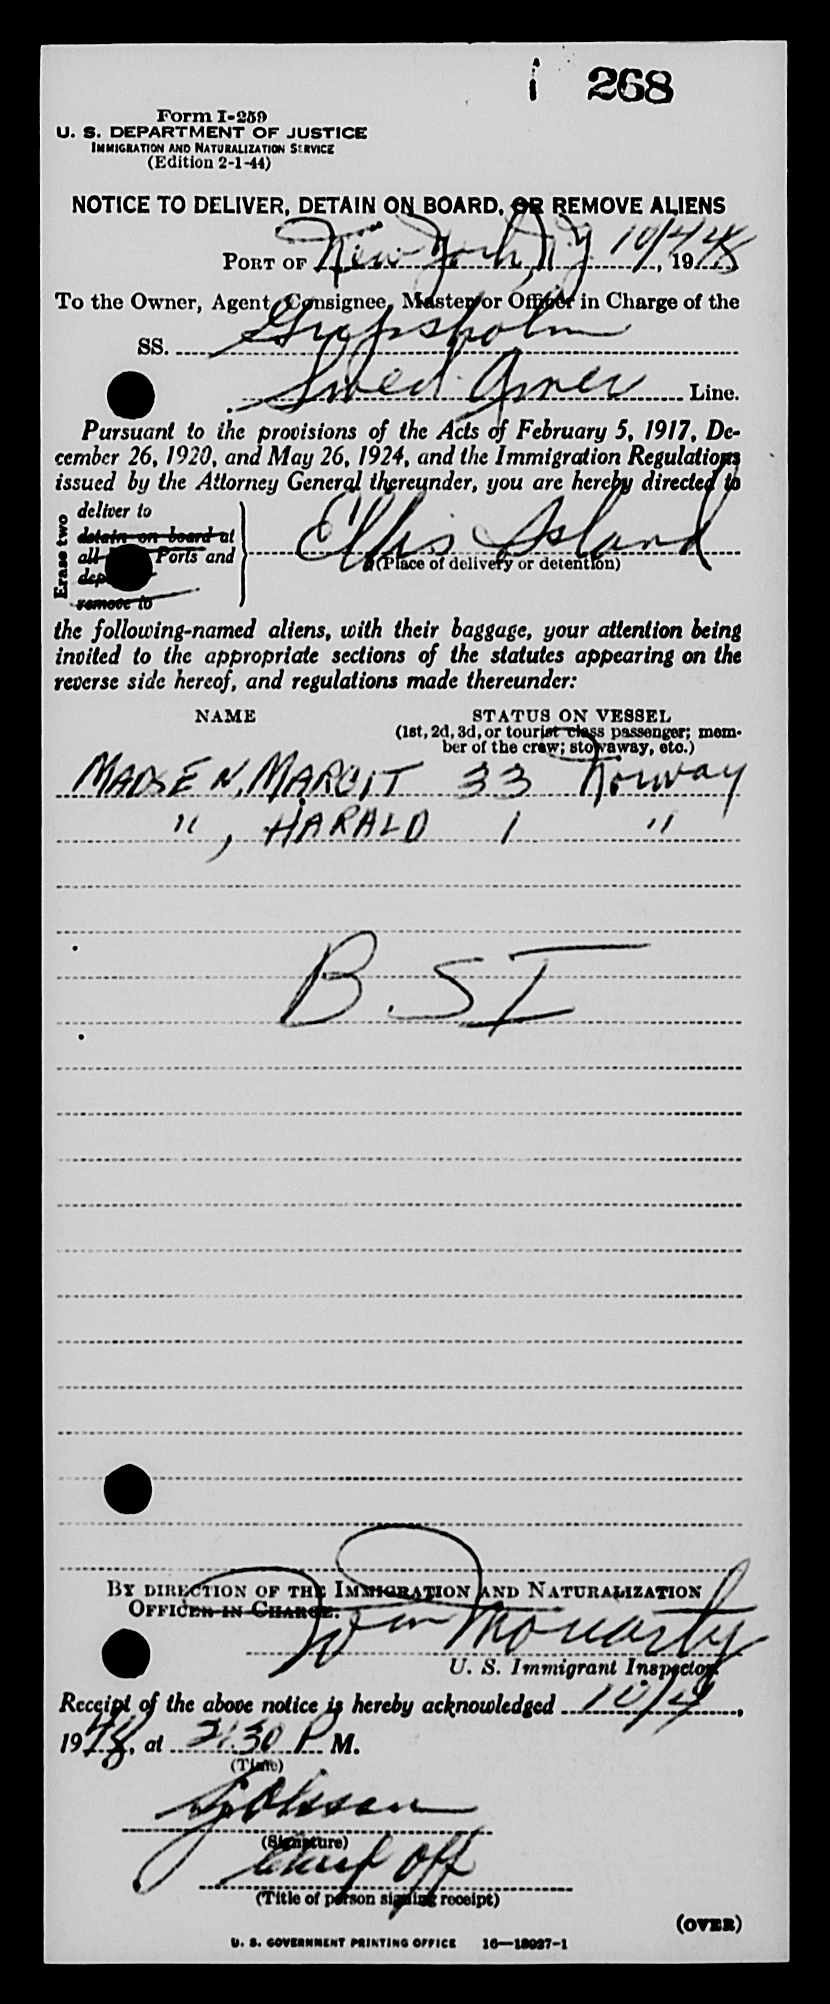 268
Form I-259
U. S. DEPARTMENT OF JUSTICE
IMMIGRATION AND NATURALIZATION SERVICE
(Edition 2-1-44)
NOTICE TO DELIVER, DETAIN ON BOARD, OR REMOVE ALIENS
PORT OF New York, N.Y. 10/4, 1948
To the Owner, Agent, Consignee, Master, or Officer in Charge of the
SS. Gripsholm
Swed. Amer Line.
Pursuant to the provisions of the Acts of February 5, 1917, De-
cember 26, 1920, and May 26, 1924, and the Immigration Regulations
issued by the Attorney General thereunder, you are hereby directed to
Erase two
deliver to
detain on board at
all Ports and
remove to
Ellis Island
(Place of delivery or detention)
the following-named aliens, with their baggage, your attention being
invited to the appropriate sections of the statutes appearing on the
reverse side hereof, and regulations made thereunder:
NAME STATUS ON VESSEL
(1st, 2d, 3d, or tourist class passenger; mem-
ber of the crew; stowaway, etc.)
MADSEN, MARGIT 33 Norway
" , HARALD 1 "
B S I
BY DIRECTION OF THE IMMIGRATION AND NATURALIZATION
OFFICER IN CHARGE:
Moriarty
U. S. Immigrant Inspector.
Receipt of the above notice is hereby acknowledged 10/4,
1948, at 2:30 P M.
(Time)
(Signature)
Chief Off
(Title of person signing receipt)
(OVER)
U. S. GOVERNMENT PRINTING OFFICE 16—18027-1